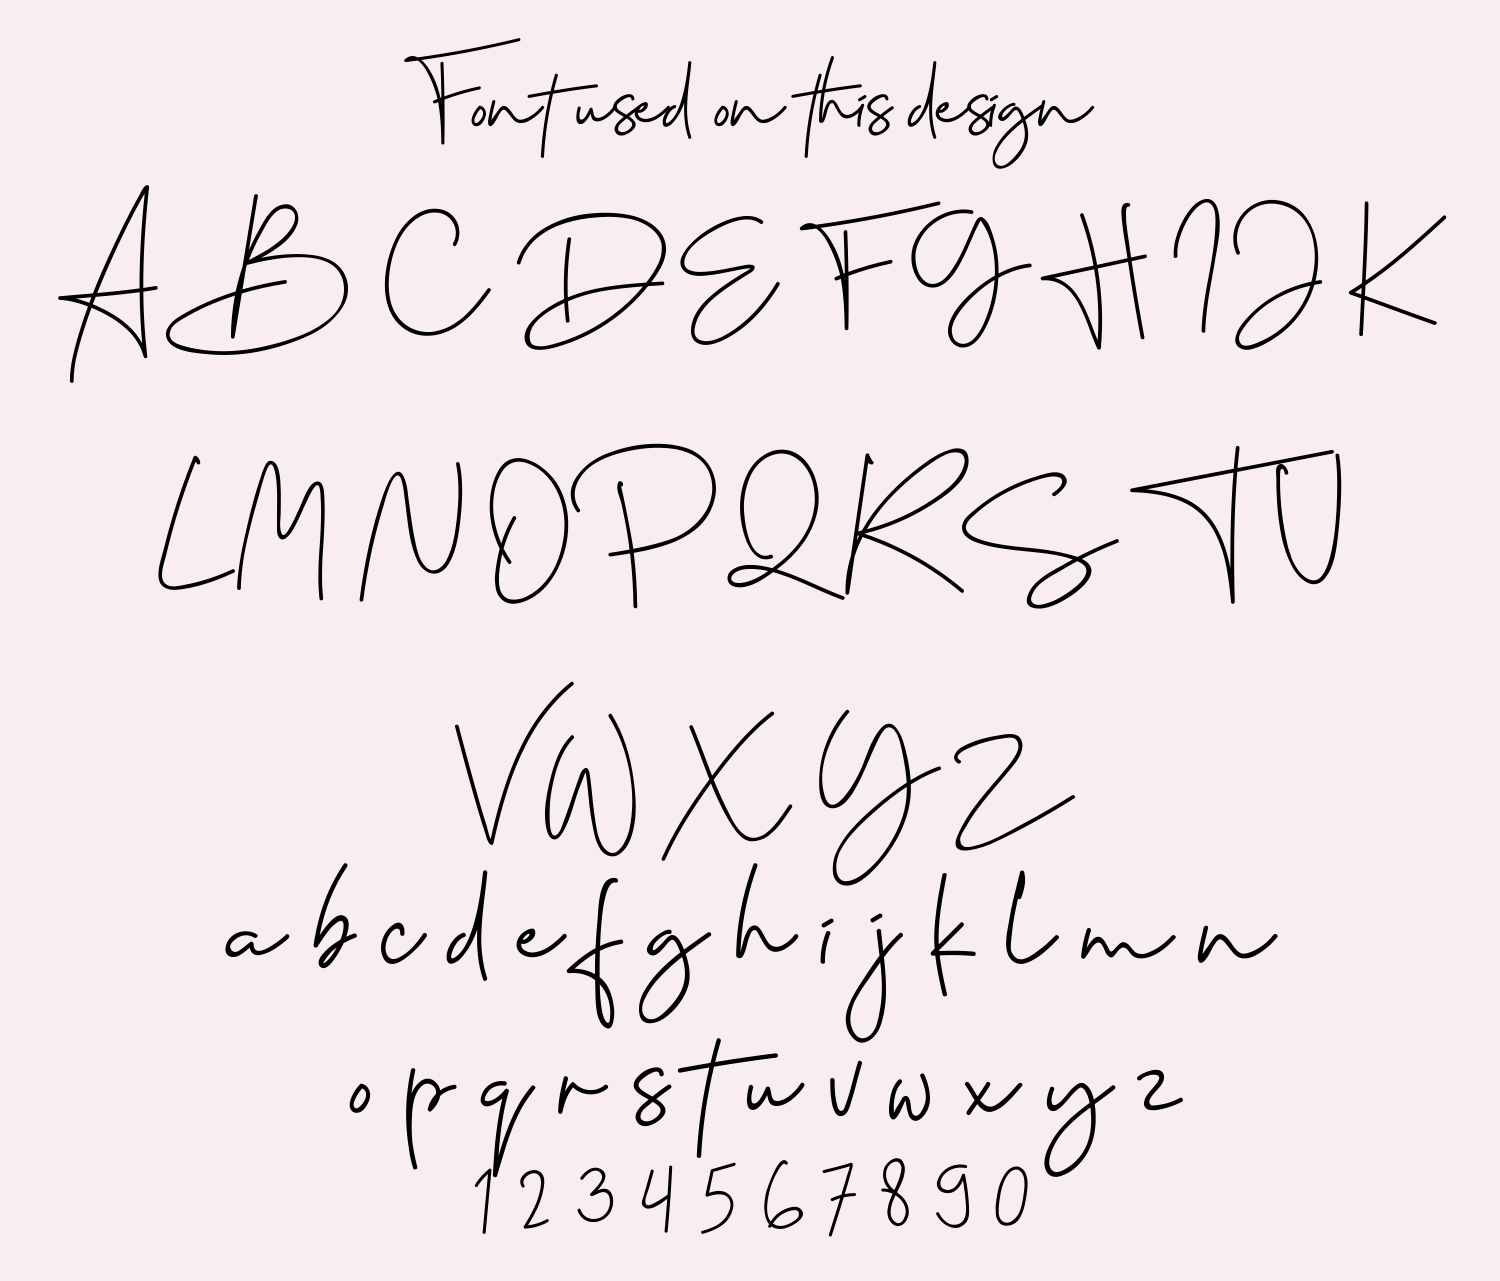 Font used on this design
A B C D E F G H I J K
L M N O P Q R S T U
V W X Y Z
a b c d e f g h i j k l m n
o p q r s t u v w x y z
1 2 3 4 5 6 7 8 9 0